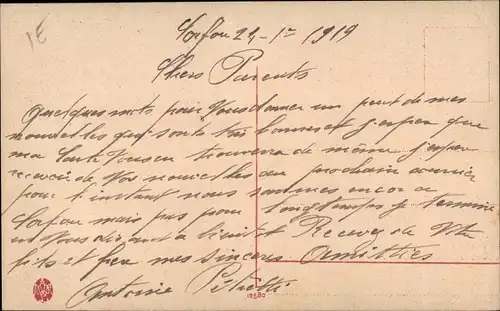 1E
Corfou 24-1er 1919
Chers Parents
quelques mots pour vous donner un peut de mes
nouvelles qui sont très bonnes et j'espere que
ma carte vous en trouvera de même j'espere
recevoir de vos nouvelles au prochain courrier
pour l'instant nous sommes encor a
Corfou mais pas pour longtemps je termine
en vous disant a bientot Recevez de votre
fils et frere mes sincères Amitties
Antoine
12580